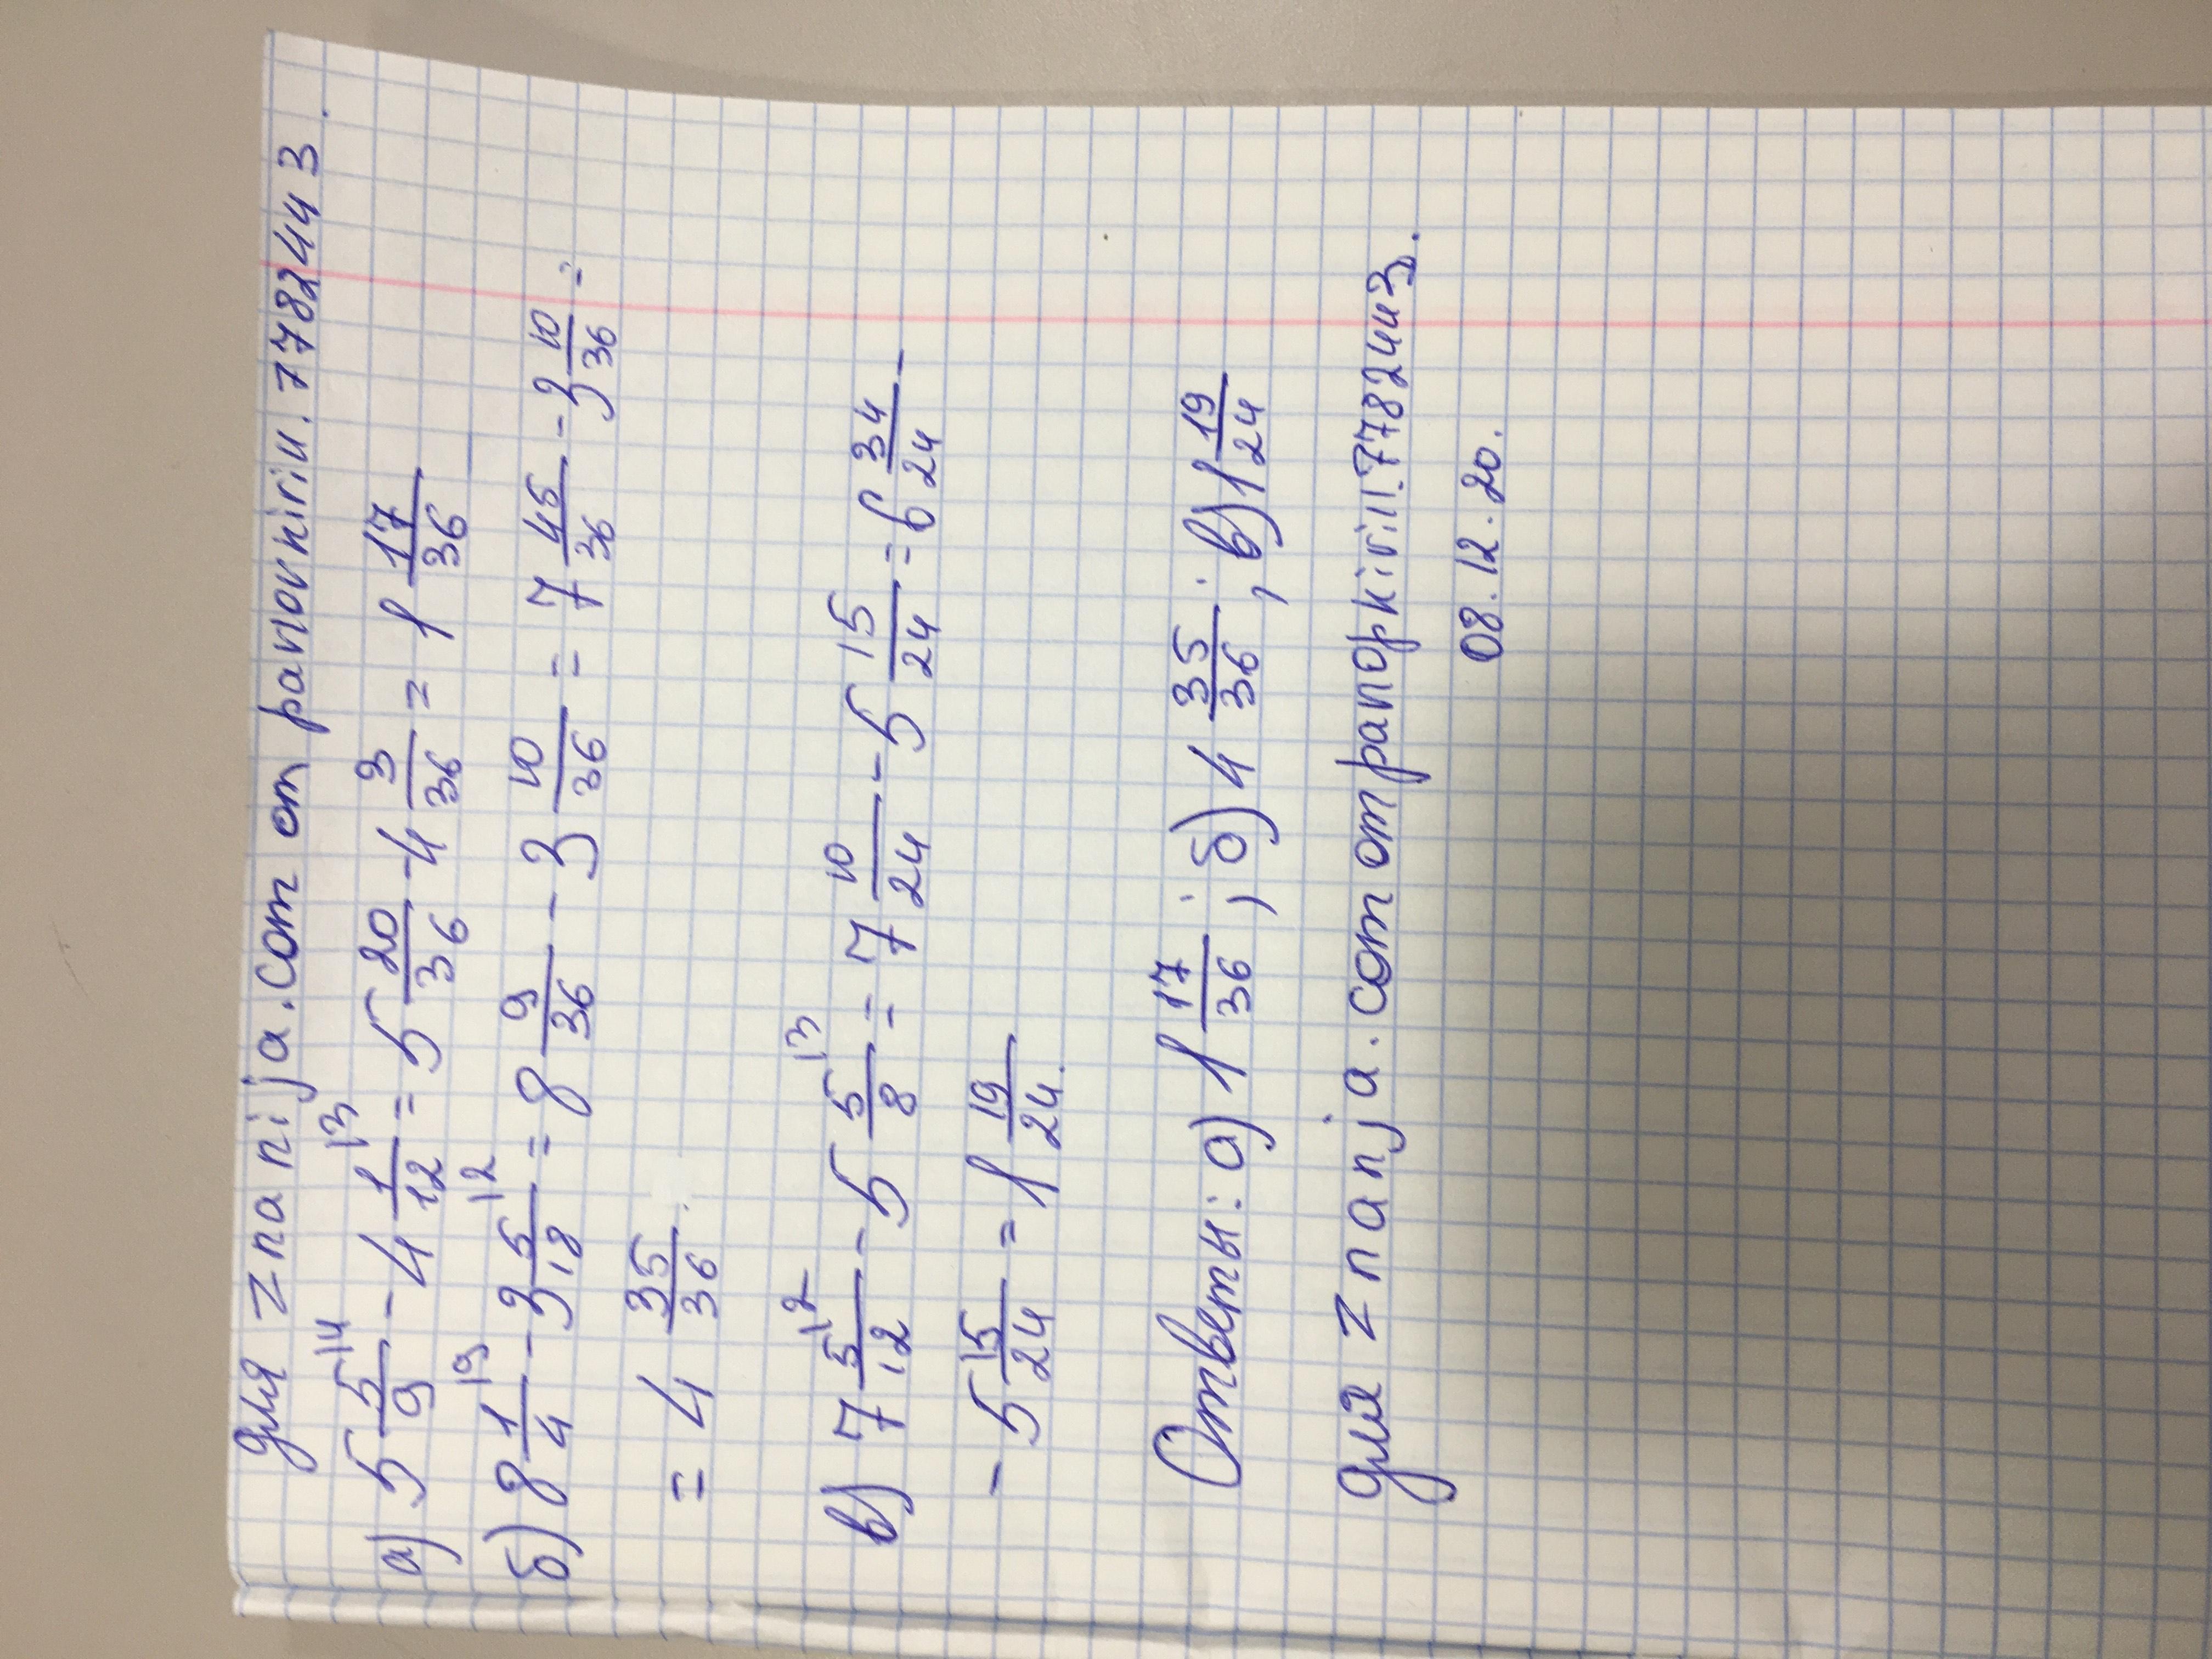 для znanija.com от panovkirill.7782443.
а) 5 5/9 |4 - 4 1/12 |3 = 5 20/36 - 4 3/36 = 1 17/36
б) 8 1/4 |9 - 3 5/18 |2 = 8 9/36 - 3 10/36 = 7 45/36 - 3 10/36 =
= 4 35/36.
в) 7 5/12 |2 - 5 5/8 |3 = 7 10/24 - 5 15/24 = 6 34/24 -
- 5 15/24 = 1 19/24.
Ответы: а) 1 17/36; б) 4 35/36; в) 1 19/24
для znanja.com от panopkirill.7782443.
08.12.20.